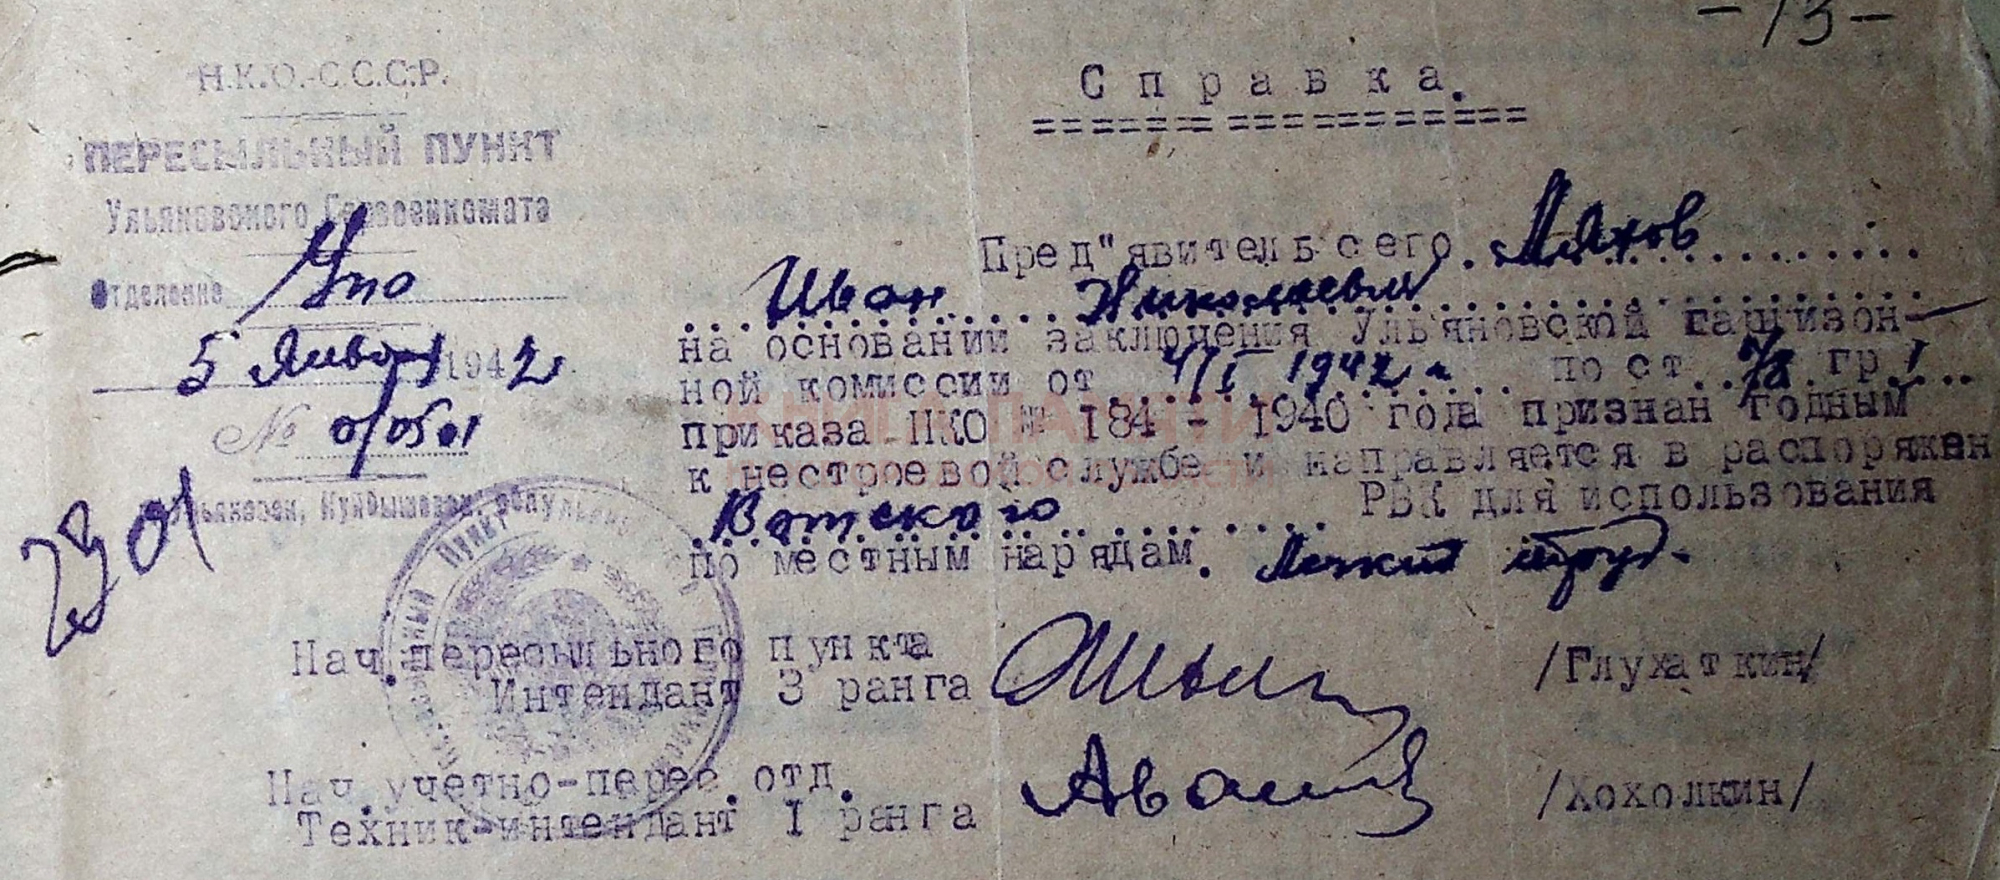 -13-
Н.К.О.-С.С.С.Р.
ПЕРЕСЫЛЬНЫЙ ПУНКТ
Ульяновского Горвоенкомата
Отделение Упо
5 Января 1942
№ 0/0501
Ульяновск, Куйбышевск. обл.
2301
Справка.
====================
Пред"явитель сего Ляхов
Иван Николаевич
на основании заключения Ульяновской гарнизон-
ной комиссии от 4/I 1942 г. по ст. гр. I
приказа НКО № 184 - 1940 года признан годным
к нестроевой службе и направляется в распоряжен
Вотского РВК для использования
по местным нарядам. Легкий труд.
Нач. пересыльного пункта
Интендант 3 ранга /Глухаткин/
Нач. учетно-перес. отд.
Техник-интендант I ранга /Хохолкин/
КНИГА ПАМЯТИ